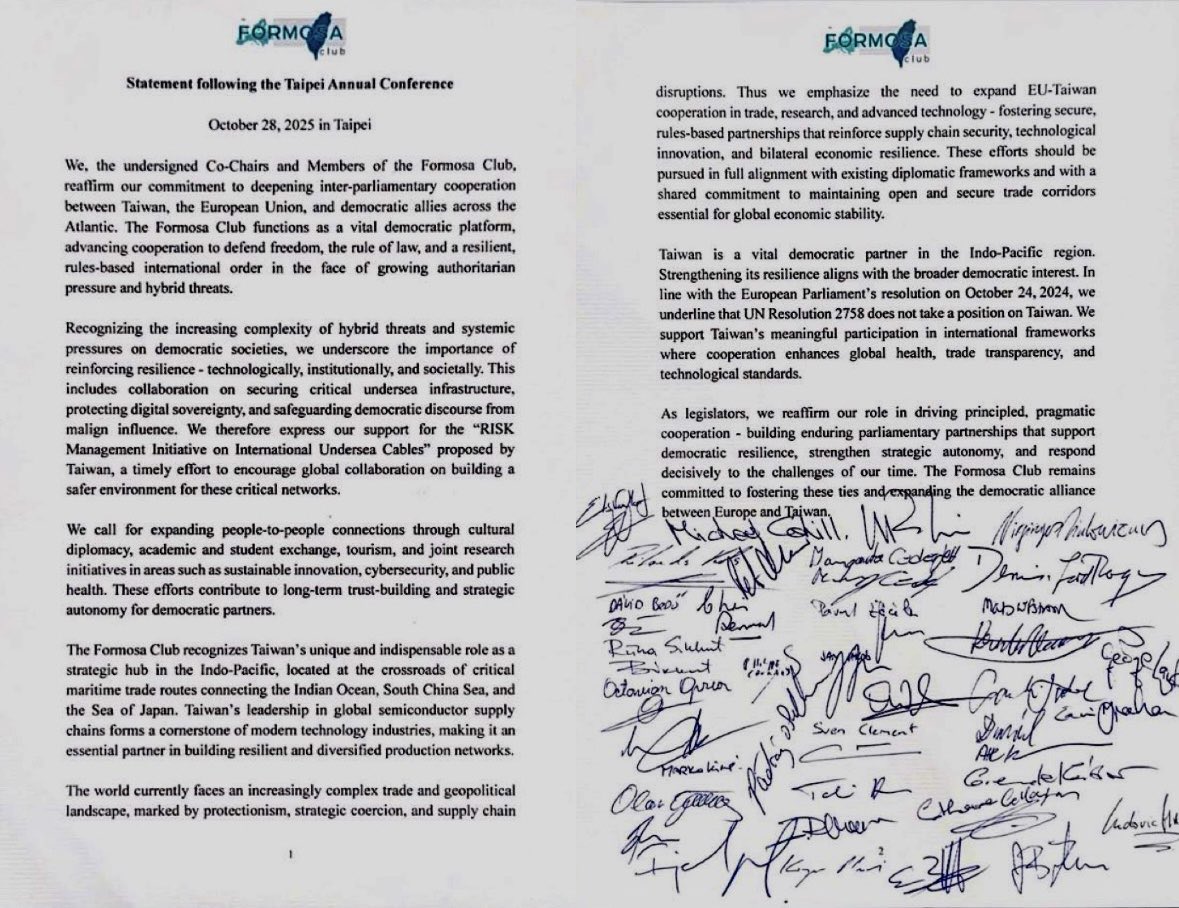 FORMOSA
club
Statement following the Taipei Annual Conference
October 28, 2025 in Taipei
We, the undersigned Co-Chairs and Members of the Formosa Club,
reaffirm our commitment to deepening inter-parliamentary cooperation
between Taiwan, the European Union, and democratic allies across the
Atlantic. The Formosa Club functions as a vital democratic platform,
advancing cooperation to defend freedom, the rule of law, and a resilient,
rules-based international order in the face of growing authoritarian
pressure and hybrid threats.
Recognizing the increasing complexity of hybrid threats and systemic
pressures on democratic societies, we underscore the importance of
reinforcing resilience - technologically, institutionally, and societally. This
includes collaboration on securing critical undersea infrastructure,
protecting digital sovereignty, and safeguarding democratic discourse from
malign influence. We therefore express our support for the “RISK
Management Initiative on International Undersea Cables” proposed by
Taiwan, a timely effort to encourage global collaboration on building a
safer environment for these critical networks.
We call for expanding people-to-people connections through cultural
diplomacy, academic and student exchange, tourism, and joint research
initiatives in areas such as sustainable innovation, cybersecurity, and public
health. These efforts contribute to long-term trust-building and strategic
autonomy for democratic partners.
The Formosa Club recognizes Taiwan’s unique and indispensable role as a
strategic hub in the Indo-Pacific, located at the crossroads of critical
maritime trade routes connecting the Indian Ocean, South China Sea, and
the Sea of Japan. Taiwan’s leadership in global semiconductor supply
chains forms a cornerstone of modern technology industries, making it an
essential partner in building resilient and diversified production networks.
The world currently faces an increasingly complex trade and geopolitical
landscape, marked by protectionism, strategic coercion, and supply chain
1
FORMOSA
club
disruptions. Thus we emphasize the need to expand EU-Taiwan
cooperation in trade, research, and advanced technology - fostering secure,
rules-based partnerships that reinforce supply chain security, technological
innovation, and bilateral economic resilience. These efforts should be
pursued in full alignment with existing diplomatic frameworks and with a
shared commitment to maintaining open and secure trade corridors
essential for global economic stability.
Taiwan is a vital democratic partner in the Indo-Pacific region.
Strengthening its resilience aligns with the broader democratic interest. In
line with the European Parliament’s resolution on October 24, 2024, we
underline that UN Resolution 2758 does not take a position on Taiwan. We
support Taiwan’s meaningful participation in international frameworks
where cooperation enhances global health, trade transparency, and
technological standards.
As legislators, we reaffirm our role in driving principled, pragmatic
cooperation - building enduring parliamentary partnerships that support
democratic resilience, strengthen strategic autonomy, and respond
decisively to the challenges of our time. The Formosa Club remains
committed to fostering these ties and expanding the democratic alliance
between Europe and Taiwan.
Michael Cahill.
DÁVID
Sven Clement
2